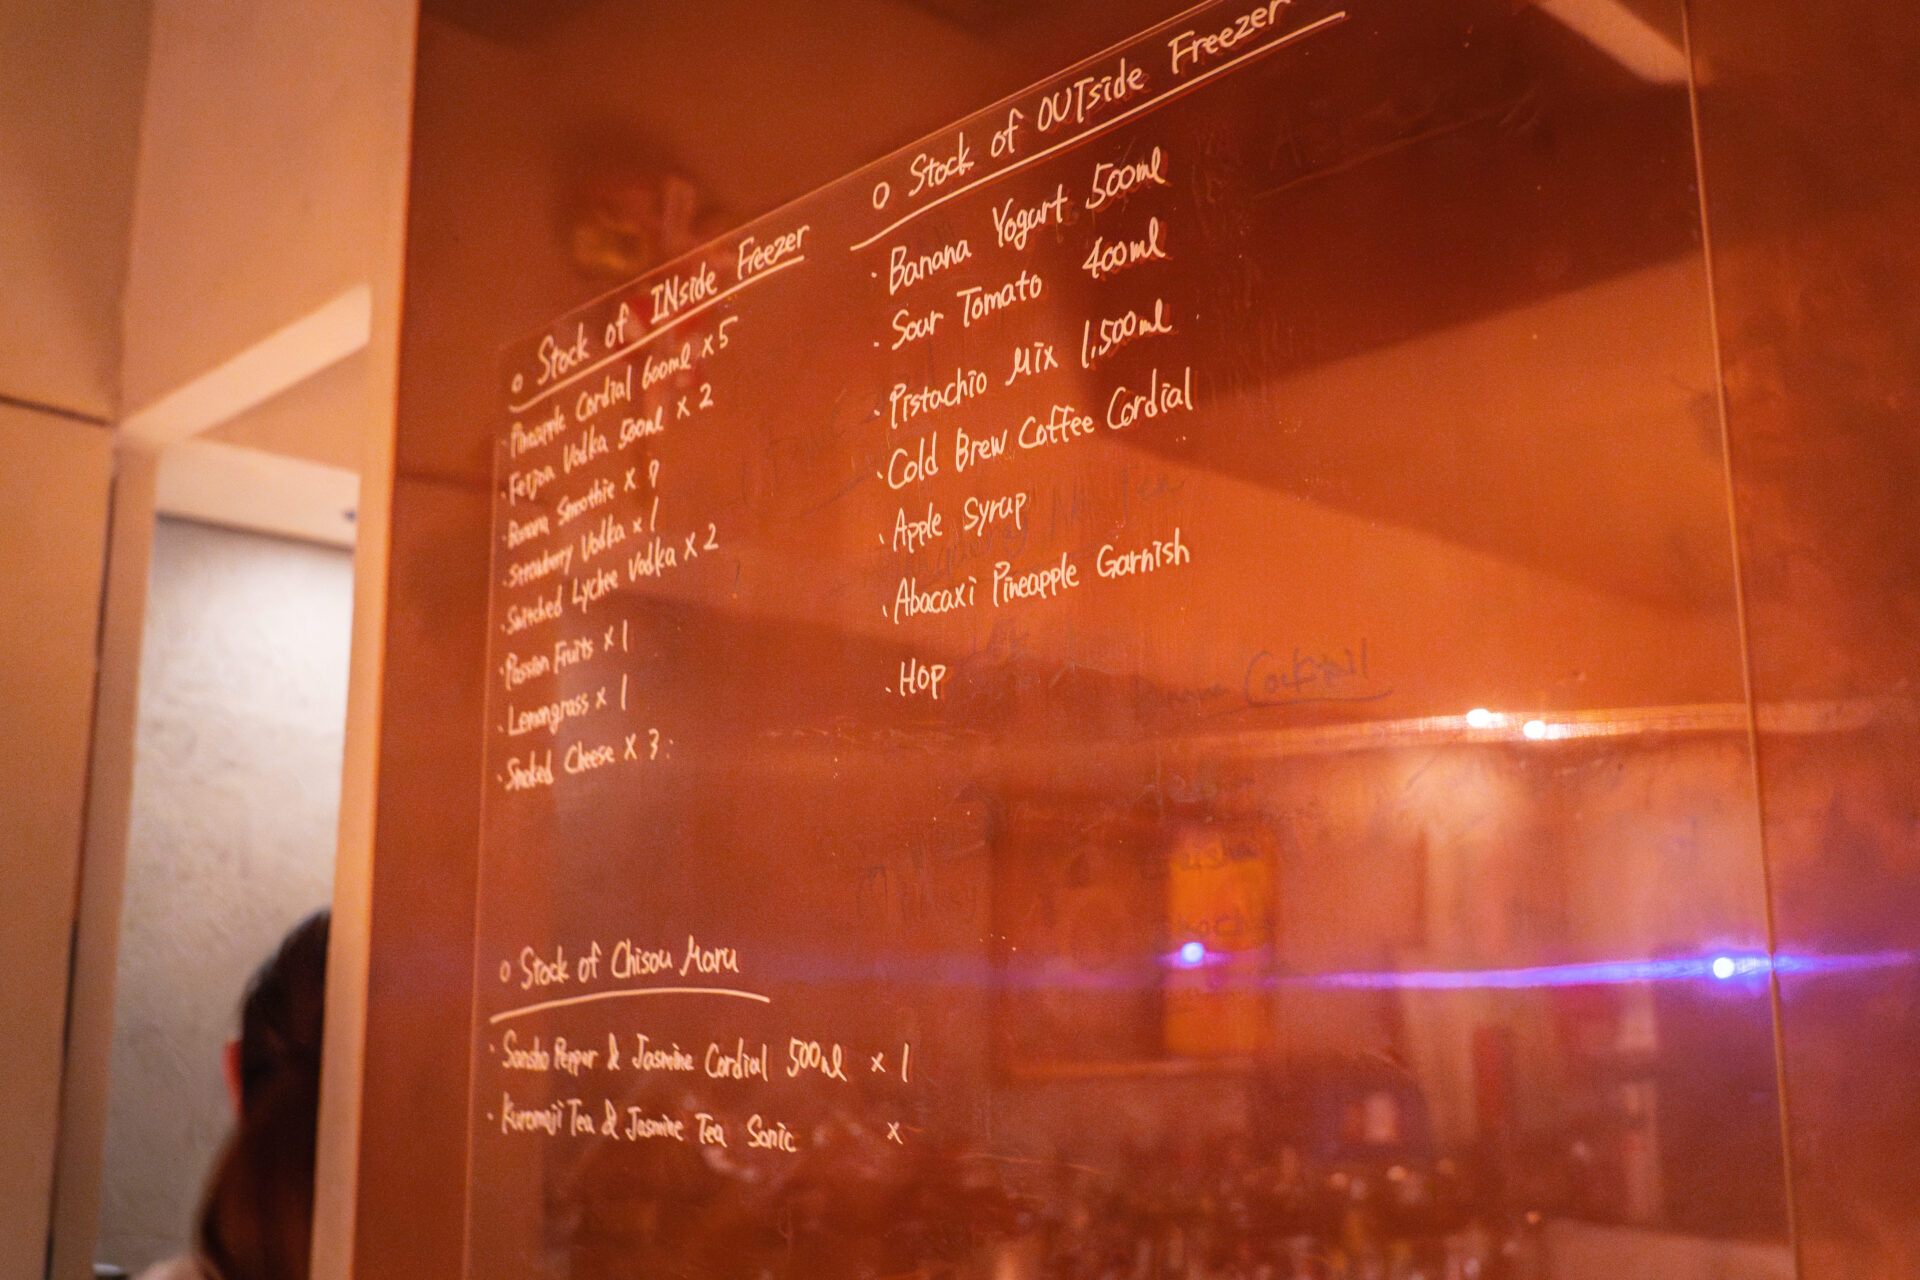 ○ Stock of INside Freezer
・Pineapple Cordial 600ml × 5
・Feijoa Vodka 500ml × 2
・Banana Smoothie × 9
・Strawberry Vodka × 1
・Switched Lychee Vodka × 2
・Passion Fruits × 1
・Lemongrass × 1
・Smoked Cheese × 3
○ Stock of OUTside Freezer
・Banana Yogurt 500ml
・Sour Tomato 400ml
・Pistachio Mix 1,500ml
・Cold Brew Coffee Cordial
・Apple Syrup
・Abacaxi Pineapple Garnish
・Hop
○ Stock of Chisou Maru
・Sansho Pepper & Jasmine Cordial 500ml × 1
・Kuromoji Tea & Jasmine Tea Sonic ×
Cocktail